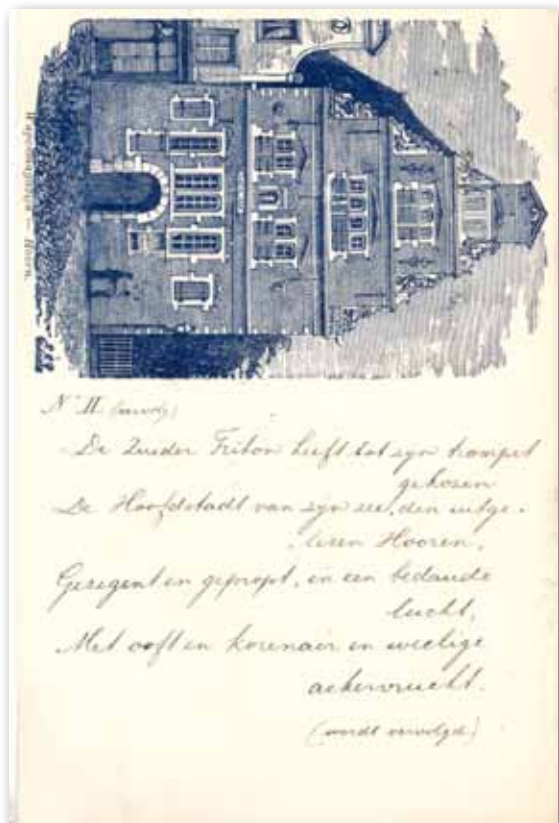 Wapenmagazijn – Hoorn.
N° II (vervolg)
De Zuider Triton heeft tot syn trompet
gekoren
De Hoofdstadt van syn zee, den uitge-
lesen Hooren,
Gezegent en gepropt, in een bedaude
lucht,
Met ooft en korenair en weelige
ackervrucht.
(wordt vervolgd)